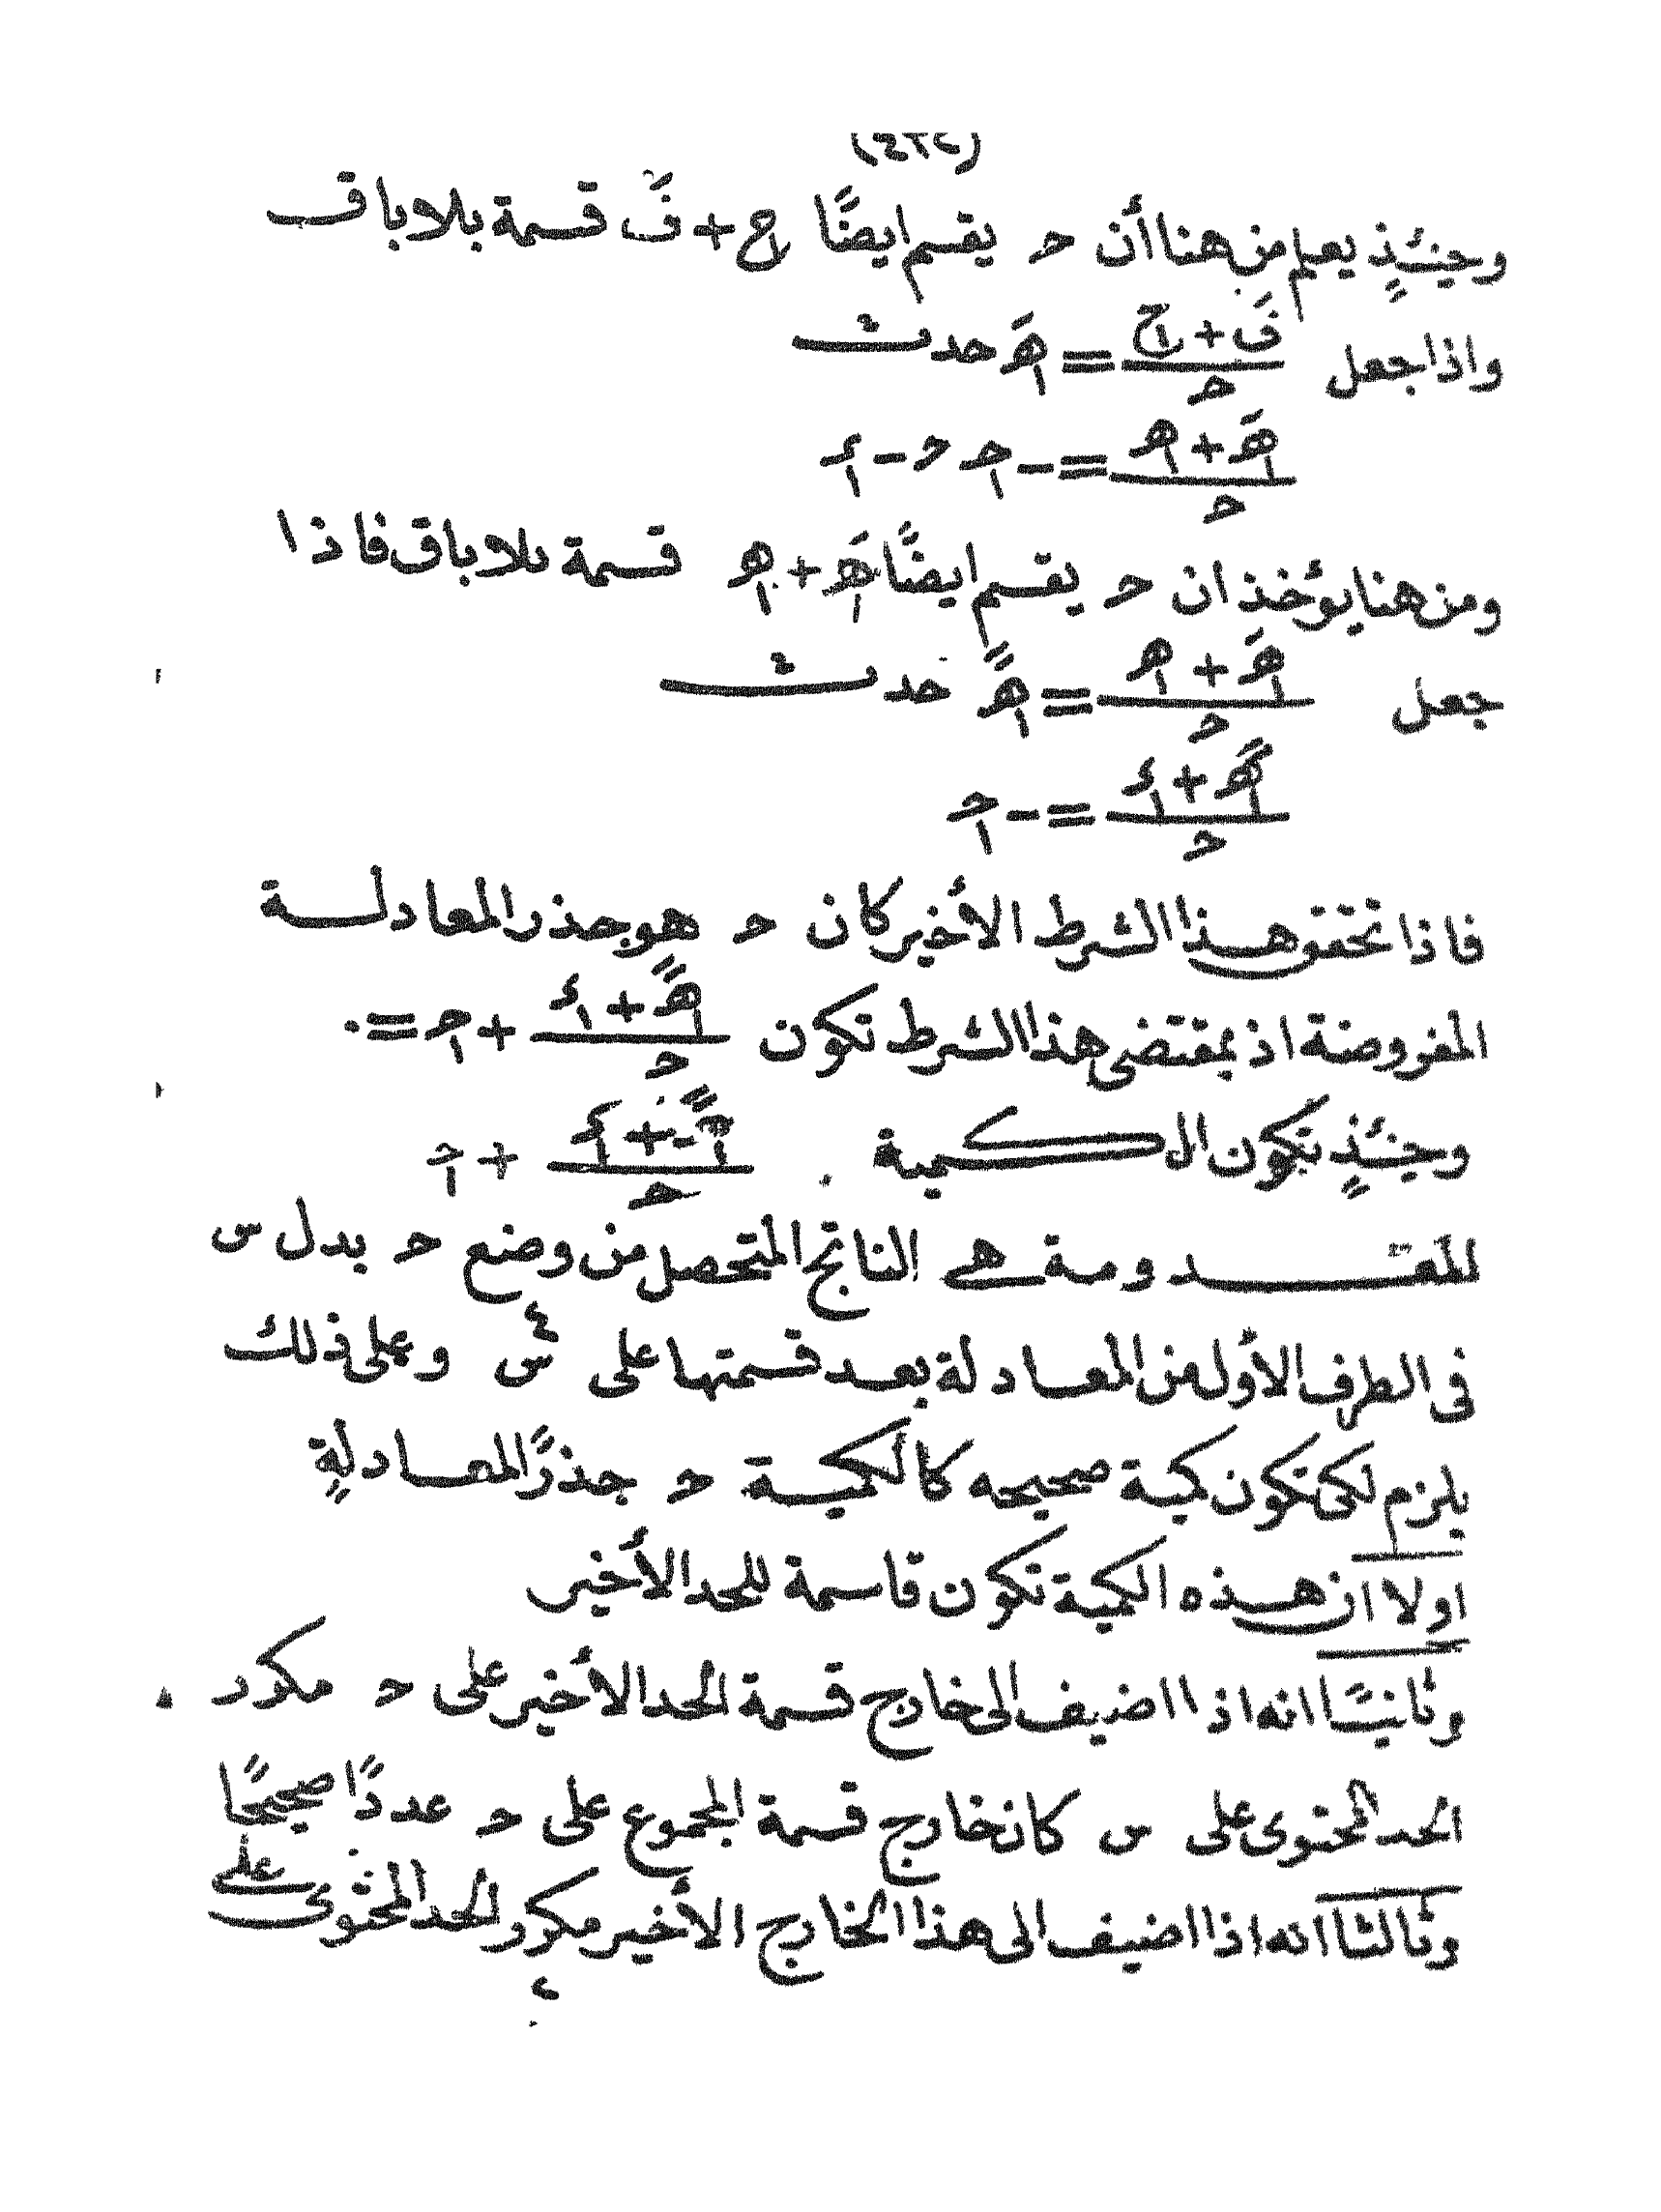 وحينئذٍ يعلم من هنا أن حـ يقسم ايضًا اج + فَ قسمة بلا باق
واذا جعل (فَ + اج)/حـ = اهَ حدث
(اهَ + اهـ)/حـ = - احـ حـ - اء
ومن هنا يؤخذ ان حـ يقسم ايضًا اهَ + اهـ قسمة بلا باق فاذا
جعل (اهَ + اهـ)/حـ = اهً حدث
(اهً + اء)/حـ = - احـ
فاذا تحقق هذا الشرط الأخير كان حـ هو جذر المعادلة
المفروضة اذ بمقتضى هذا الشرط تكون (اهً + اء)/حـ + احـ = ٠
وحينئذٍ تكون الكمية + اء)/حـ + احـ
المقدومة هي الناتج المتحصل من وضع حـ بدل س
فى الطرف الأول من المعادلة بعد قسمتها على س٤ وعلى ذلك
يلزم لكى تكون كمية صحيحه كالكمية حـ جذرًا لمعادلةٍ
اولا ان هذه الكمية تكون قاسمة للحد الأخير
وثانيًا انه اذا اضيف الى خارج قسمة الحد الأخير على حـ مكرر
الحد المحتوى على س كان خارج قسمة المجموع على حـ عددًا صحيحًا
وثالثا انه اذا اضيف الى هذا الخارج الأخير مكرر الحد المحتوى على